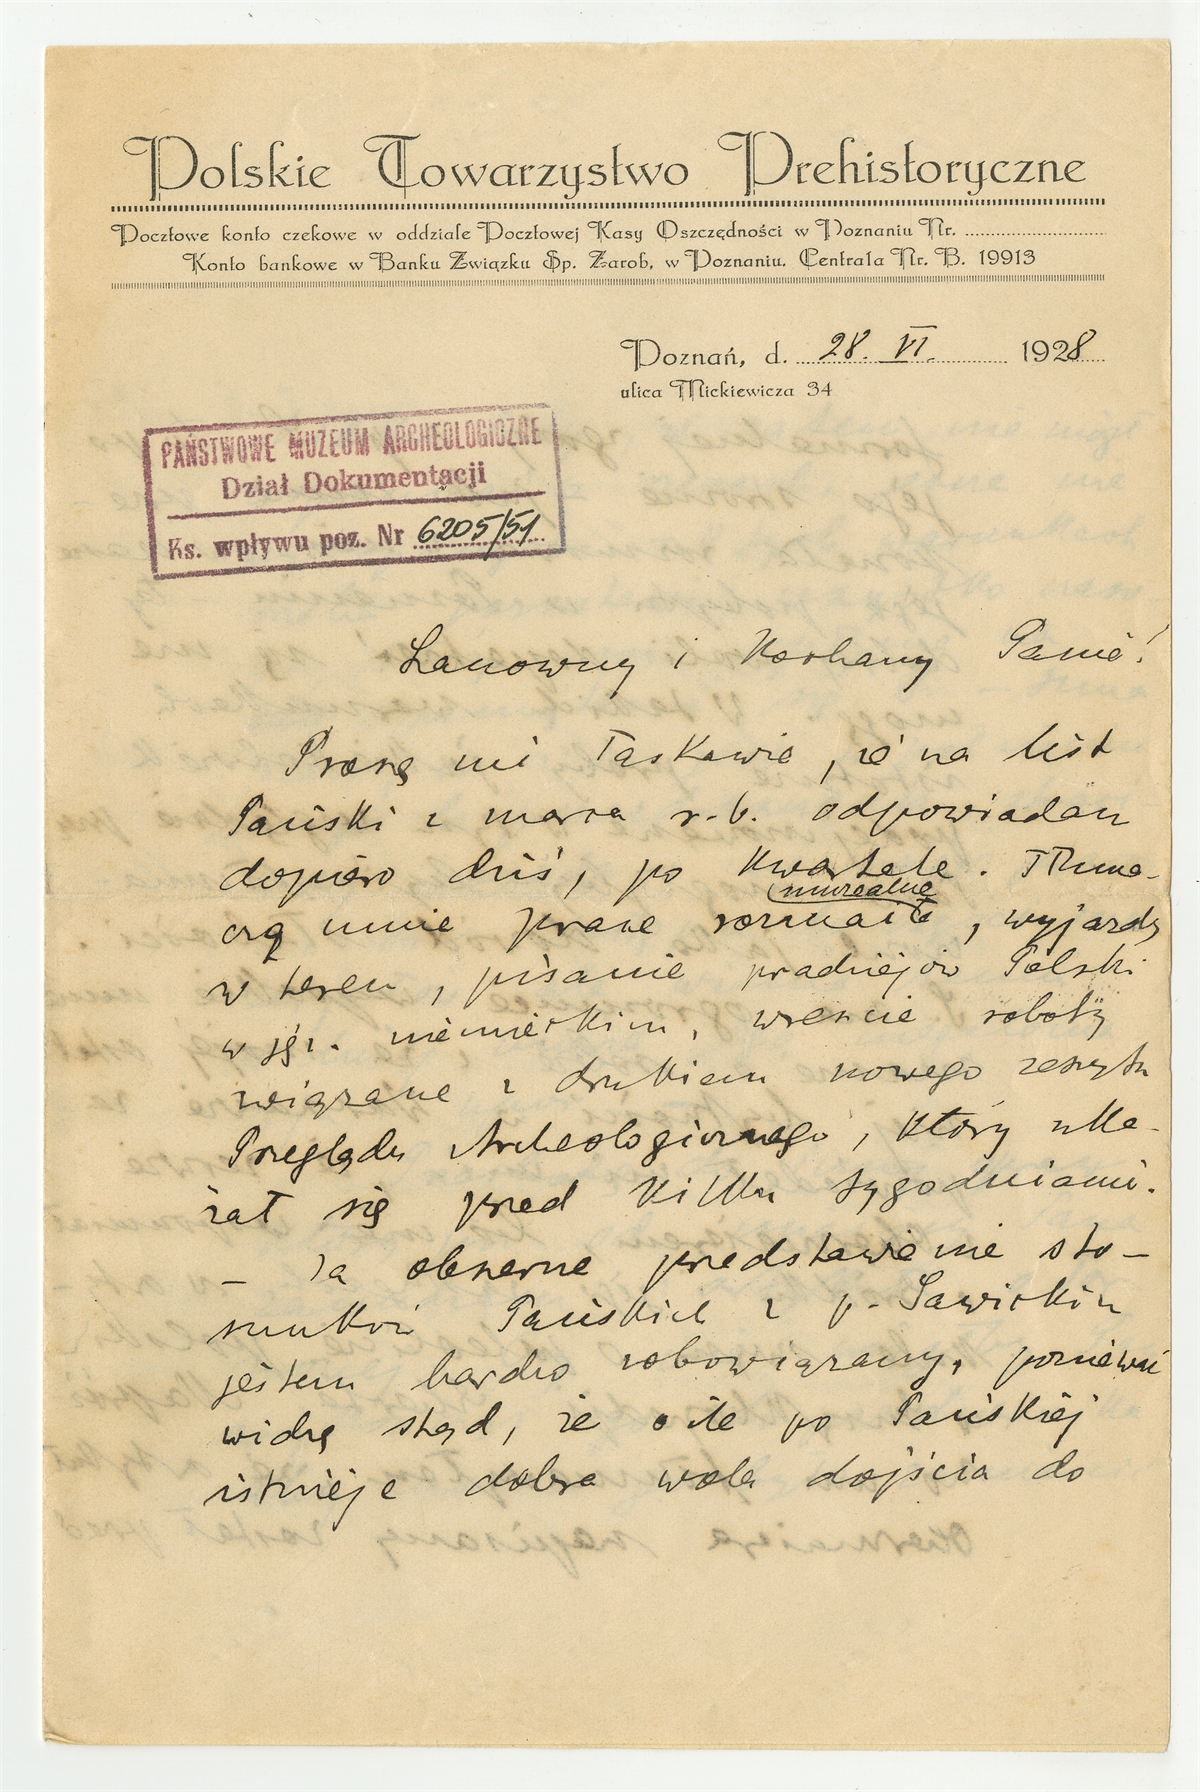 Polskie Towarzystwo Prehistoryczne
Pocztowe konto czekowe w oddziale Pocztowej Kasy Oszczędności w Poznaniu Nr. ........
Konto bankowe w Banku Związku Sp. Zarob, w Poznaniu. Centrala Nr. B. 19913
Poznań, d. 28. VI. 1928
ulica Mickiewicza 34
PAŃSTWOWE MUZEUM ARCHEOLOGICZNE
Dział Dokumentacji
Ks. wpływu poz. Nr 6205/51
Szanowny i Kochany Panie!
Proszę mi łaskawie, że na list
Pański z marca r.b. odpowiadam
dopiero dziś, po kwartale. Tłuma-
muzealne
czą mnie prace rozmaite, wyjazdy
w teren, pisanie pradziejów Polski
w jęz. niemieckim, wreszcie roboty
związane z drukiem nowego zeszytu
Przeglądu Archeologicznego, który uka-
zał się przed kilku tygodniami.
– Za obszerne przedstawienie sto-
sunków Pańskich z p. Sawickim
jestem bardzo zobowiązany, ponieważ
widzę stąd, że o ile po Pańskiej
istnieje dobra wola dojścia do